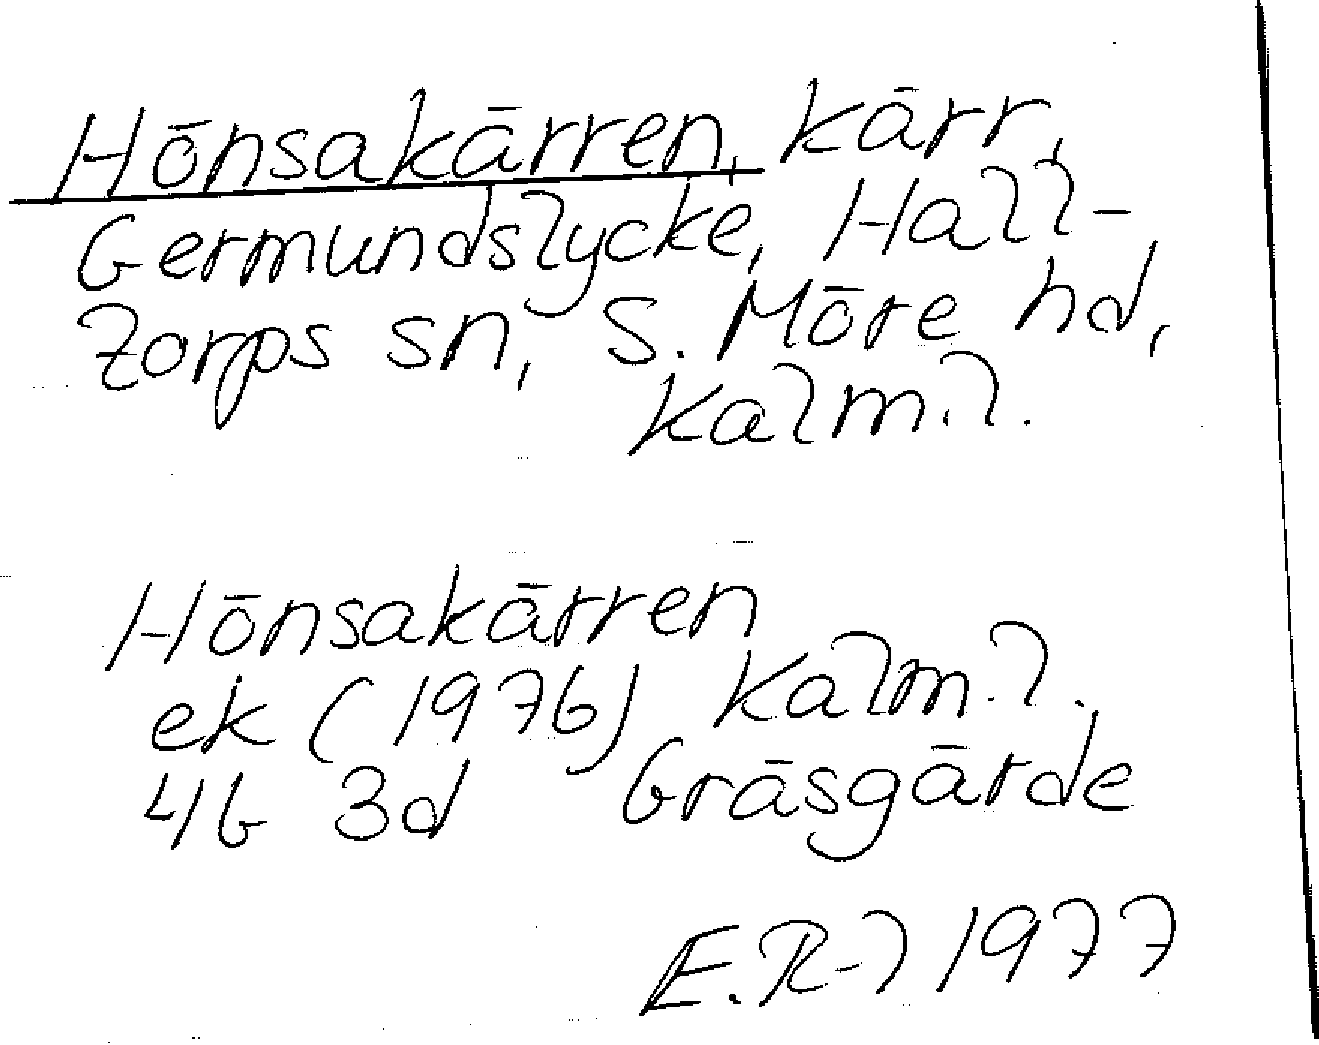 Hönsakärren, kärr,
Germundslycke, Hall-
torps sn, S. Möre hd,
Kalm. l.
Hönsakärren
ek (1976) Kalm. l.
4G 3d Gräsgärde
E. R-l 1977